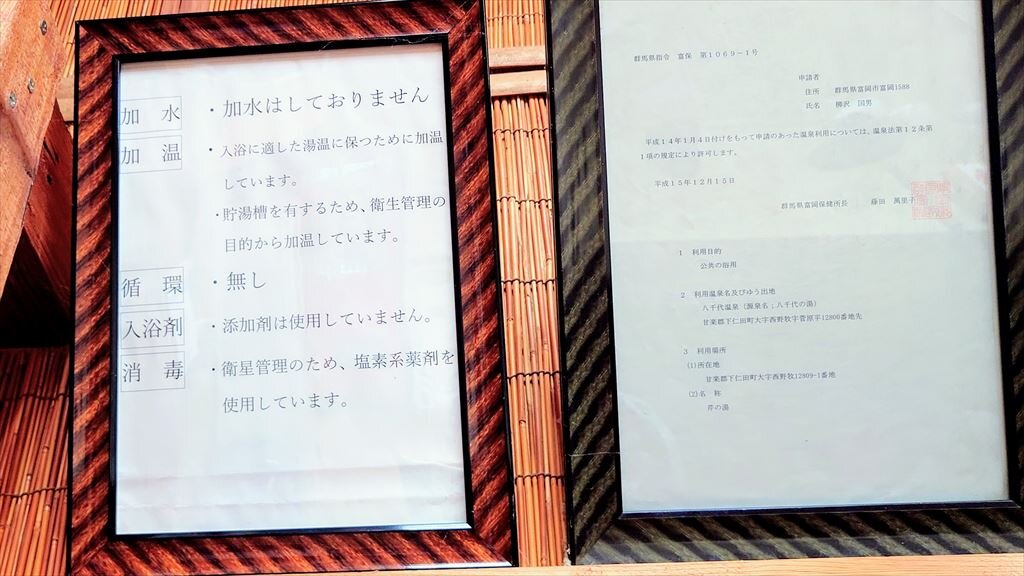 加水 ・加水はしておりません
加温 ・入浴に適した湯温に保つために加温
しています。
・貯湯槽を有するため、衛生管理の
目的から加温しています。
循環 ・無し
入浴剤 ・添加剤は使用していません。
消毒 ・衛星管理のため、塩素系薬剤を
使用しています。
群馬県指令 富保 第1069-1号
申請者
住所 群馬県富岡市富岡1588
氏名 柳沢 国男
平成14年1月4日付けをもって申請のあった温泉利用については、温泉法第12条第
1項の規定により許可します。
平成15年12月15日
群馬県富岡保健所長 藤田 萬里子
1 利用目的
公共の浴用
2 利用温泉名及びゆう出地
八千代温泉（源泉名；八千代の湯）
甘楽郡下仁田町大字西野牧字菅原平12800番地先
3 利用場所
(1)所在地
甘楽郡下仁田町大字西野牧12809-1番地
(2)名 称
芹の湯